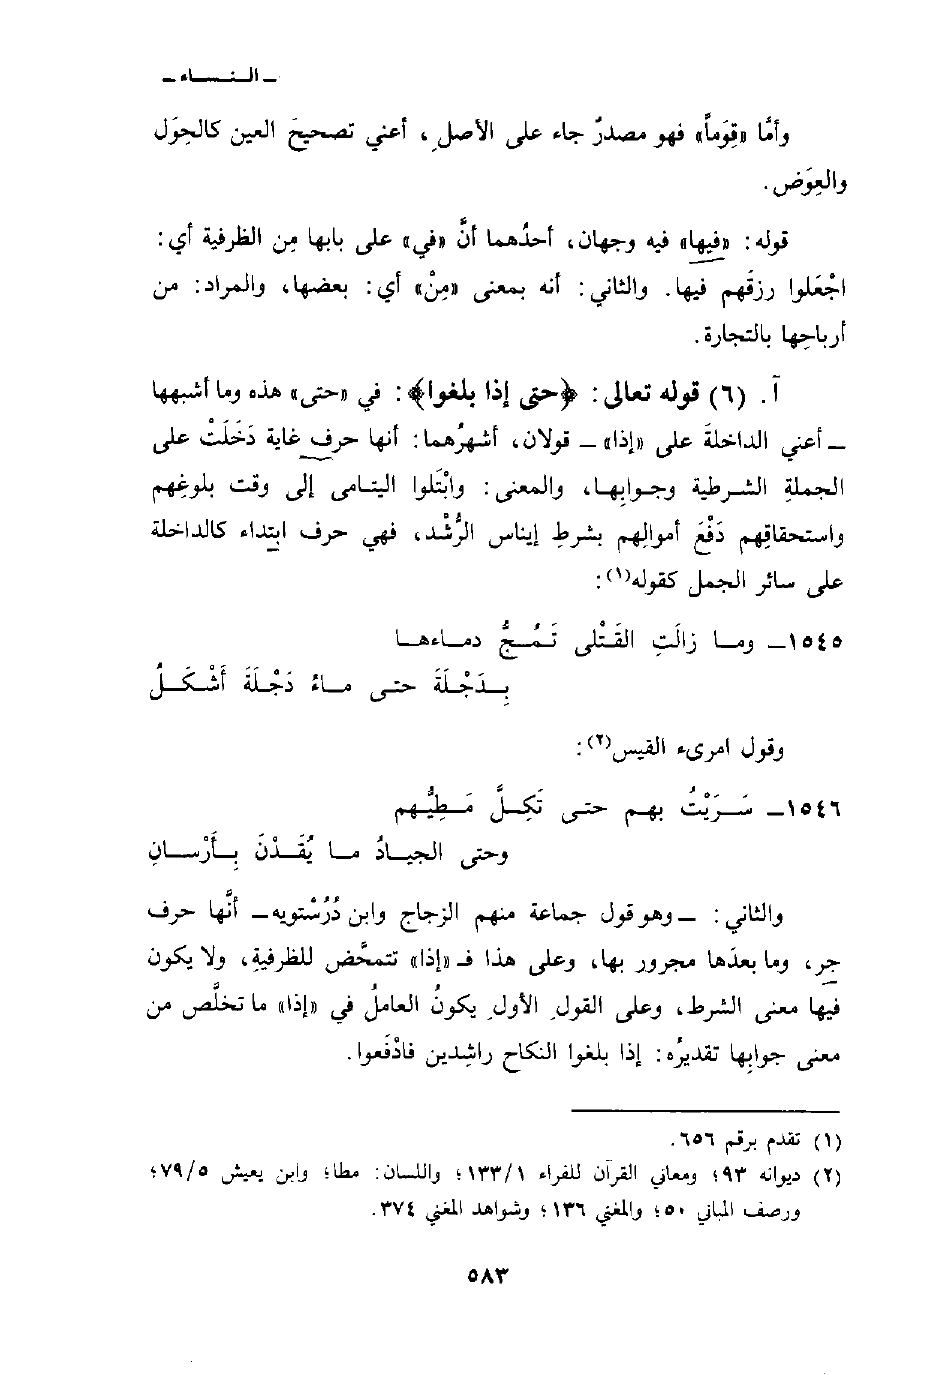 ـ النساء ـ
وأمَّا «قِوَماً» فهو مصدرٌ جاء على الأصلِ، أعني تصحيحَ العين كالحِوَل
والعِوَض.
قوله: «فيها» فيه وجهان، أحدُهما أنَّ «في» على بابها مِن الظرفية أي:
اجْعَلوا رزقَهم فيها. والثاني: أنه بمعنى «مِنْ» أي: بعضها، والمراد: من
أرباحِها بالتجارة.
آ. (٦) قوله تعالى: ﴿حتى إذا بلغوا﴾: في «حتى» هذه وما أشبهها
ـ أعني الداخلةَ على «إذا» ـ قولان، أشهرُهما: أنها حرف غاية دَخَلَتْ على
الجملةِ الشرطية وجوابِها، والمعنى: وابْتَلوا اليتامى إلى وقت بلوغِهم
واستحقاقِهم دَفْعَ أموالِهم بشرطِ إيناس الرُّشْد، فهي حرف ابتداء كالداخلة
على سائر الجمل كقوله(١):
١٥٤٥ـ وما زالَتِ القَتْلى تَمُجُّ دماءها
بِدَجْلَةَ حتى ماءُ دَجْلَةَ أَشْكَلُ
وقول امرىء القيس(٢):
١٥٤٦ـ سَرَيْتُ بهم حتى تَكِلَّ مَطِيُّهم
وحتى الجيادُ ما يُقَدْنَ بِأَرْسانِ
والثاني: ـ وهو قول جماعة منهم الزجاج وابن دُرُسْتويه ـ أنَّها حرف
جر، وما بعدَها مجرور بها، وعلى هذا فـ «إذا» تتمحَّض للظرفيةِ، ولا يكون
فيها معنى الشرط، وعلى القولِ الأولِ يكونُ العاملُ في «إذا» ما تخلَّص من
معنى جوابِها تقديرُه: إذا بلغوا النكاح راشِدين فادْفَعوا.
(١) تقدم برقم ٦٥٦.
(٢) ديوانه ٩٣؛ ومعاني القرآن للفراء ١/١٣٣؛ واللسان: مطا؛ وابن يعيش ٥/٧٩؛
ورصف المباني ٥٠؛ والمغني ١٣٦؛ وشواهد المغني ٣٧٤.
٥٨٣